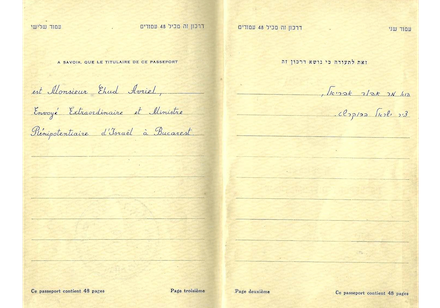 עמוד שלישי
דרכון זה מכיל 48 עמודים
A SAVOIR, QUE LE TITULAIRE DE CE PASSEPORT
est Monsieur, Ehud Avriel,
Envoyé Extraordinaire et Ministre
Plénipotentiaire d'Israël à Bucarest
Ce passeport contient 48 pages
Page troisième
דרכון זה מכיל 48 עמודים
עמוד שני
וזאת לתעודה כי נושא דרכון זה
הוא מר אהוד אבריאל,
ציר ישראל בבוקרשט.
Page deuxième
Ce passeport contient 48 pages